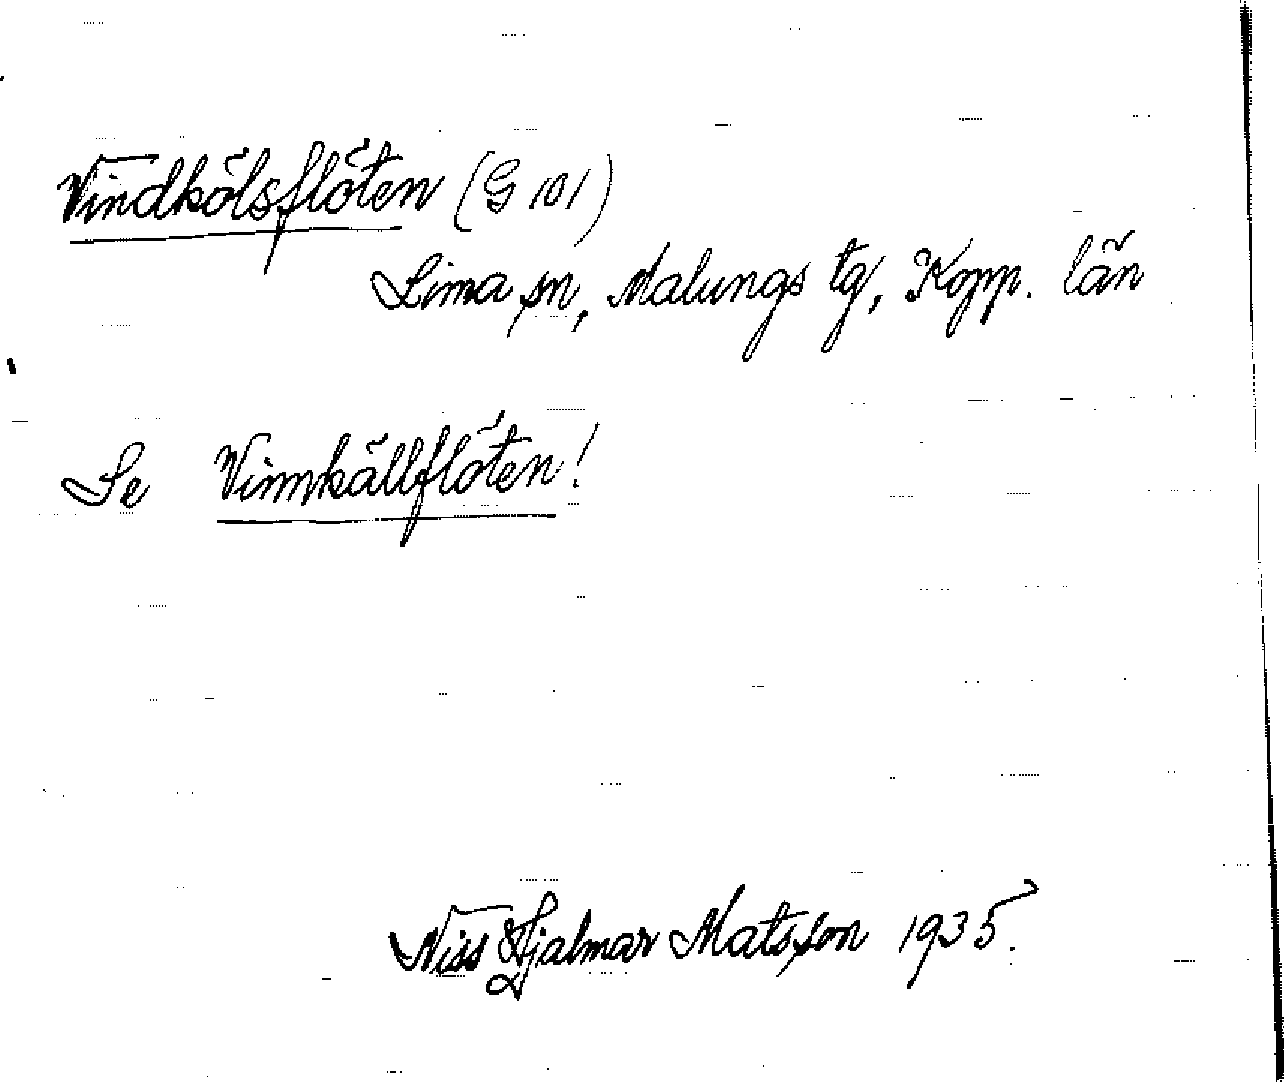 Vindkölsflöten (G 101)
Lima sn, Malungs tg, Kopp. län
Se Vinnkällflöten!
Niss Hjalmar Matsson 1935.